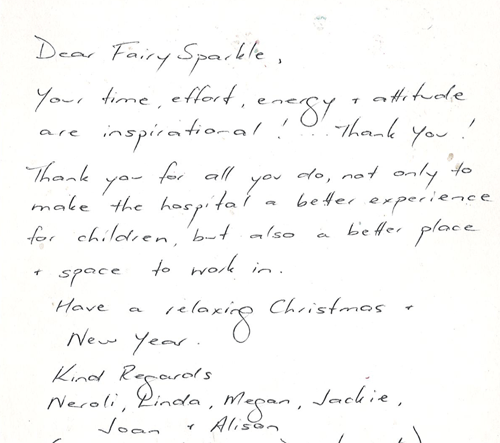 Dear Fairy Sparkle,
Your time, effort, energy + attitude
are inspirational! ... Thank you!
Thank you for all you do, not only to
make the hospital a better experience
for children, but also a better place
+ space to work in.
Have a relaxing Christmas +
New Year.
Kind Regards
Neroli, Linda, Megan, Jackie,
Joan + Alison